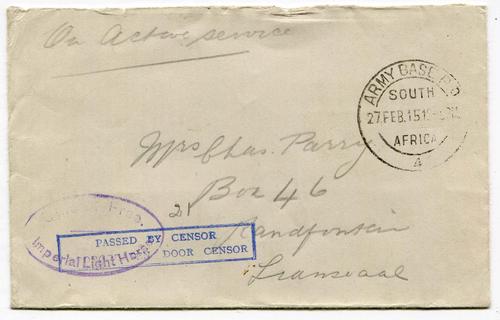 On Active service
ARMY BASE P.O.
SOUTH
27.FEB.15
AFRICA
4
Mrs Chas. Parry
Box 46
Randfontein
Transvaal
Imperial Light Horse
PASSED BY CENSOR
DOOR CENSOR